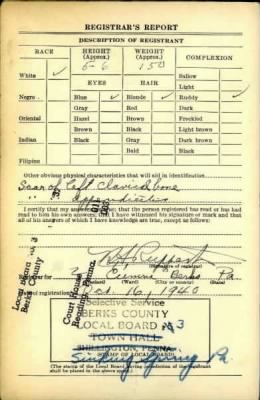 REGISTRAR'S REPORT
DESCRIPTION OF REGISTRANT
RACE HEIGHT (Approx.) WEIGHT (Approx.) COMPLEXION
White ✓ 5-6 150 Sallow
EYES HAIR Light
Negro Blue ✓ Blonde ✓ Ruddy ✓
Gray Red Dark
Oriental Hazel Brown Freckled
Brown Black Light brown
Indian Black Gray Dark brown
Bald Black
Filipino
Other obvious physical characteristics that will aid in identification
Scar of left clavicle bone
" " appendicitis
I certify that my answers are true; that the person registered has read or has
had read to him his own answers; that I have witnessed his signature or mark and that
all of his answers of which I have knowledge are true, except as follows:
Local Board No. 3
Berks County
Court House
Reading, Penna.
(Signature of registrar)
Registrar for 2 Berks Pa.
(Precinct) (Ward) (City or county) (State)
Date of registration Oct. 16, 1940
Selective Service
BERKS COUNTY
LOCAL BOARD No. 3
TOWN HALL
SHILLINGTON, PENNA.
(STAMP OF LOCAL BOARD)
Sinking Spring Pa.
(The stamp of the Local Board having jurisdiction of the registrant
shall be placed in the above space)